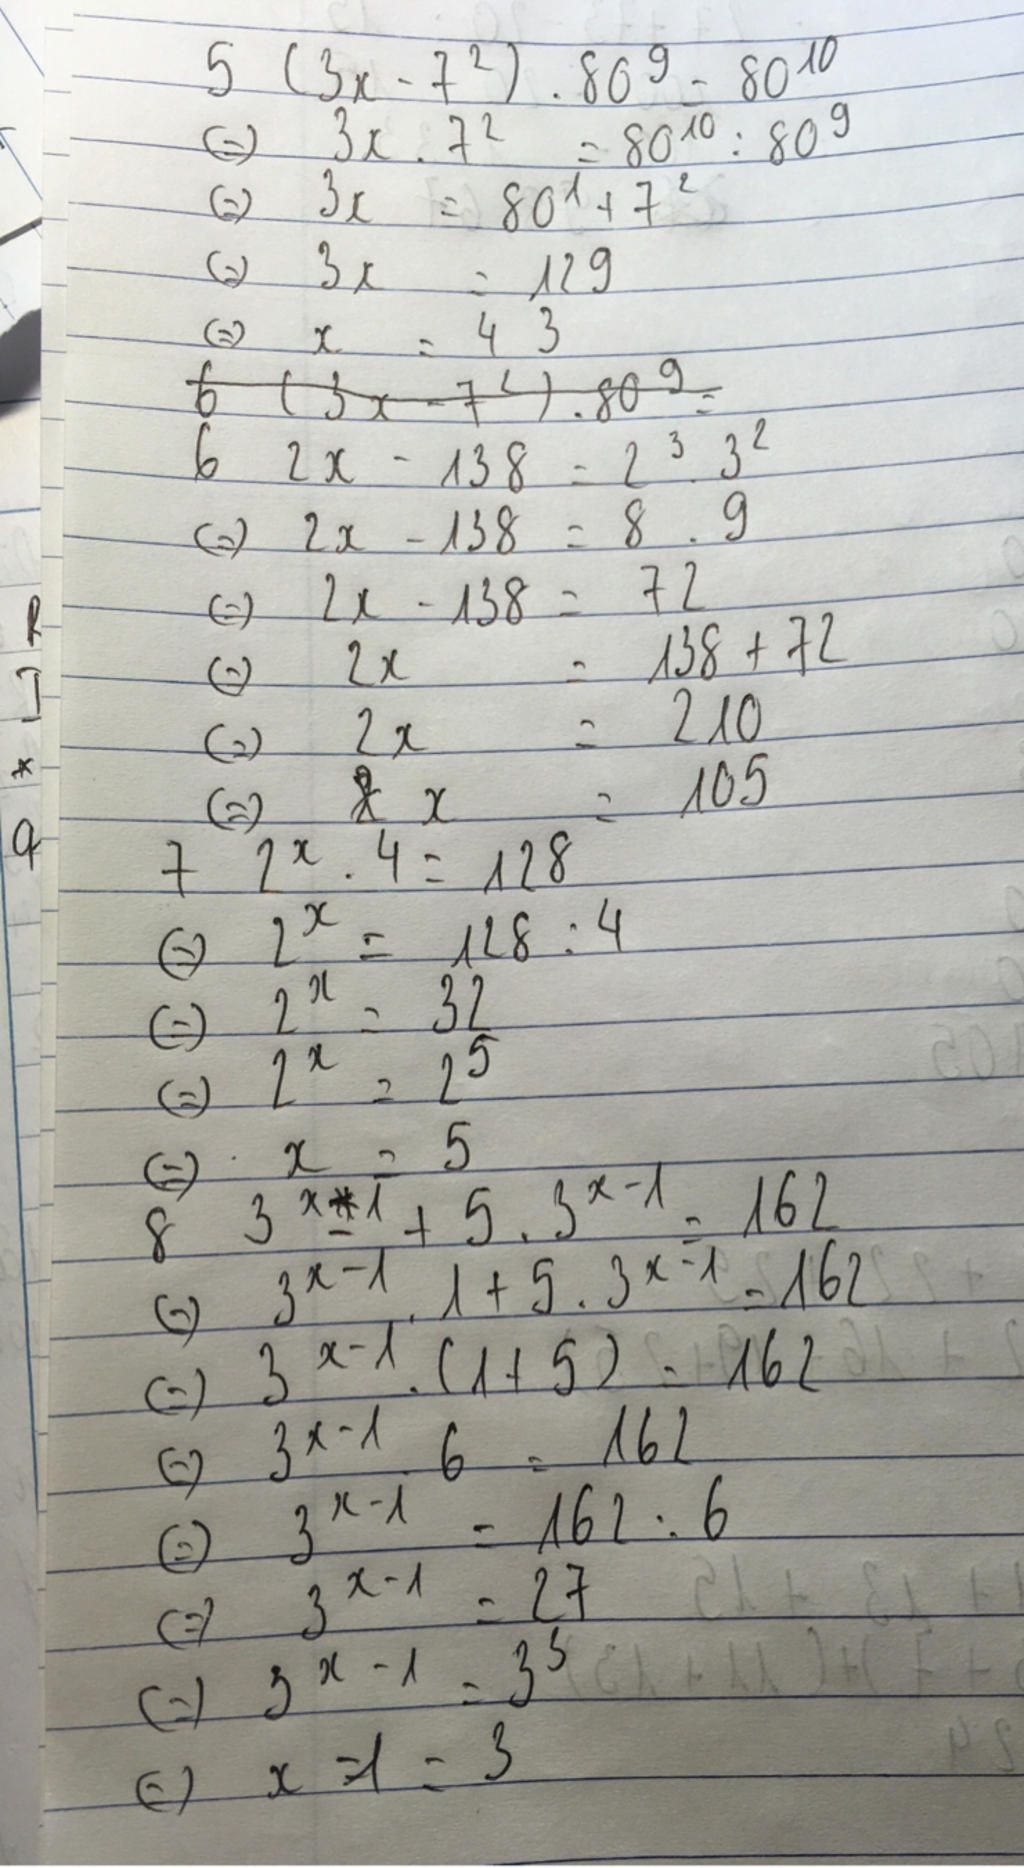 5 (3x - 7²) . 80⁹ = 80¹⁰
(=) 3x . 7² = 80¹⁰ : 80⁹
(=) 3x = 80¹ + 7²
(=) 3x = 129
(=) x = 43
6 (3x - 7²) . 80⁹ =
6 2x - 138 = 2³ . 3²
(=) 2x - 138 = 8 . 9
(=) 2x - 138 = 72
(=) 2x = 138 + 72
(=) 2x = 210
(=) x = 105
7 2ˣ . 4 = 128
(=) 2ˣ = 128 : 4
(=) 2ˣ = 32
(=) 2ˣ = 2⁵
(=) x = 5
8 3ˣ⁻¹ + 5 . 3ˣ⁻¹ = 162
(=) 3ˣ⁻¹ . 1 + 5 . 3ˣ⁻¹ = 162
(=) 3ˣ⁻¹ . (1 + 5) = 162
(=) 3ˣ⁻¹ . 6 = 162
(=) 3ˣ⁻¹ = 162 : 6
(=) 3ˣ⁻¹ = 27
(=) 3ˣ⁻¹ = 3³
(=) x - 1 = 3